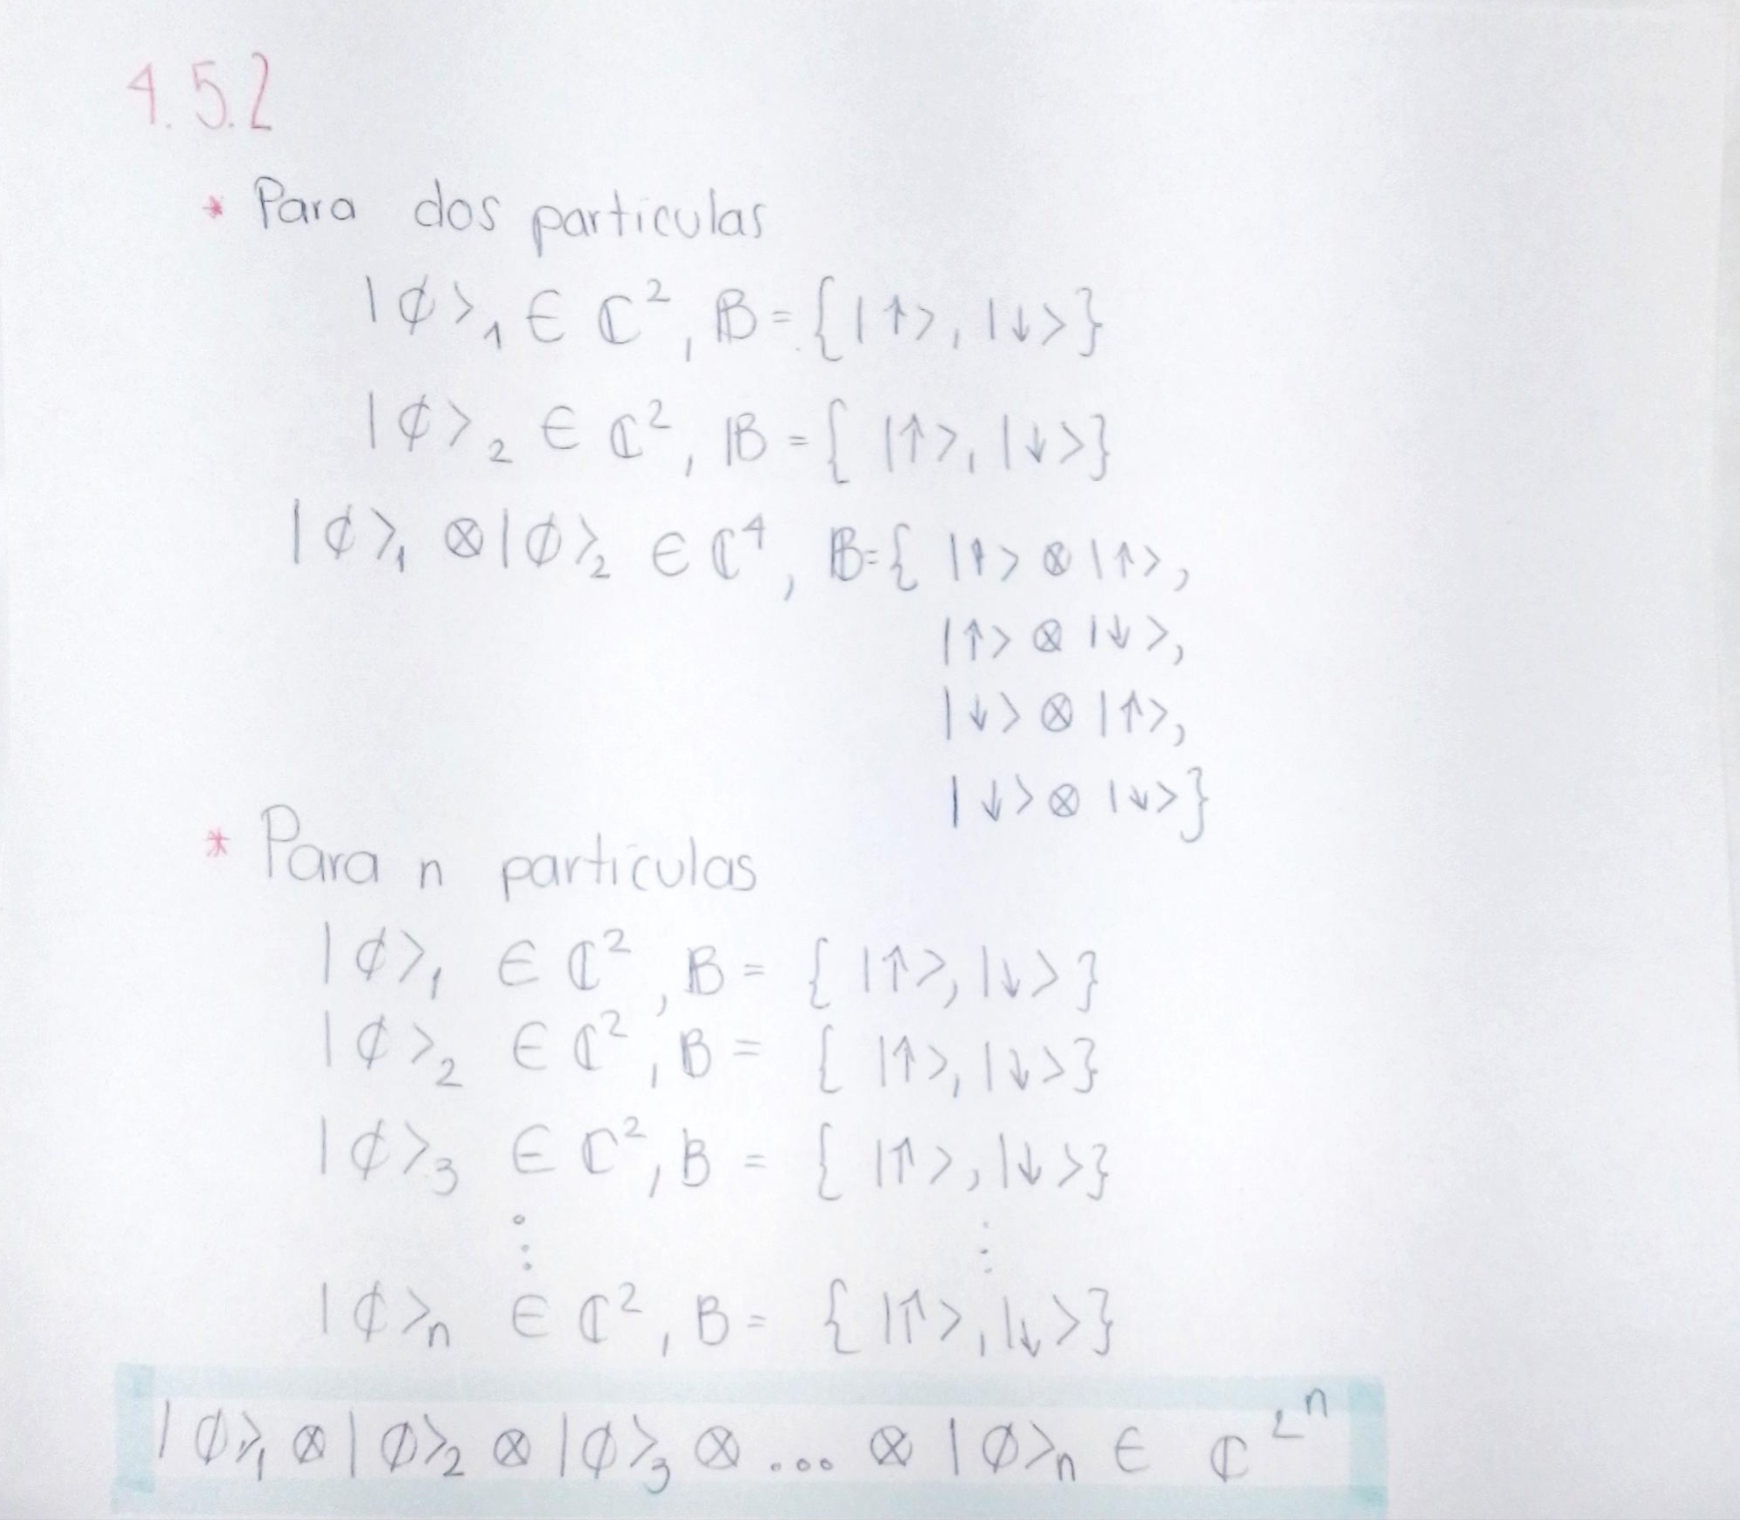 4.5.2
* Para dos particulas
|φ>₁ ∈ ℂ², 𝔹 = {|↑>, |↓>}
|φ>₂ ∈ ℂ², 𝔹 = {|↑>, |↓>}
|φ>₁ ⊗ |φ>₂ ∈ ℂ⁴, 𝔹 = {|↑> ⊗ |↑>,
|↑> ⊗ |↓>,
|↓> ⊗ |↑>,
|↓> ⊗ |↓>}
* Para n partículas
|φ>₁ ∈ ℂ², 𝔹 = {|↑>, |↓>}
|φ>₂ ∈ ℂ², 𝔹 = {|↑>, |↓>}
|φ>₃ ∈ ℂ², 𝔹 = {|↑>, |↓>}
⋮ ⋮
|φ>ₙ ∈ ℂ², 𝔹 = {|↑>, |↓>}
|φ>₁ ⊗ |φ>₂ ⊗ |φ>₃ ⊗ ... ⊗ |φ>ₙ ∈ ℂ^2^n